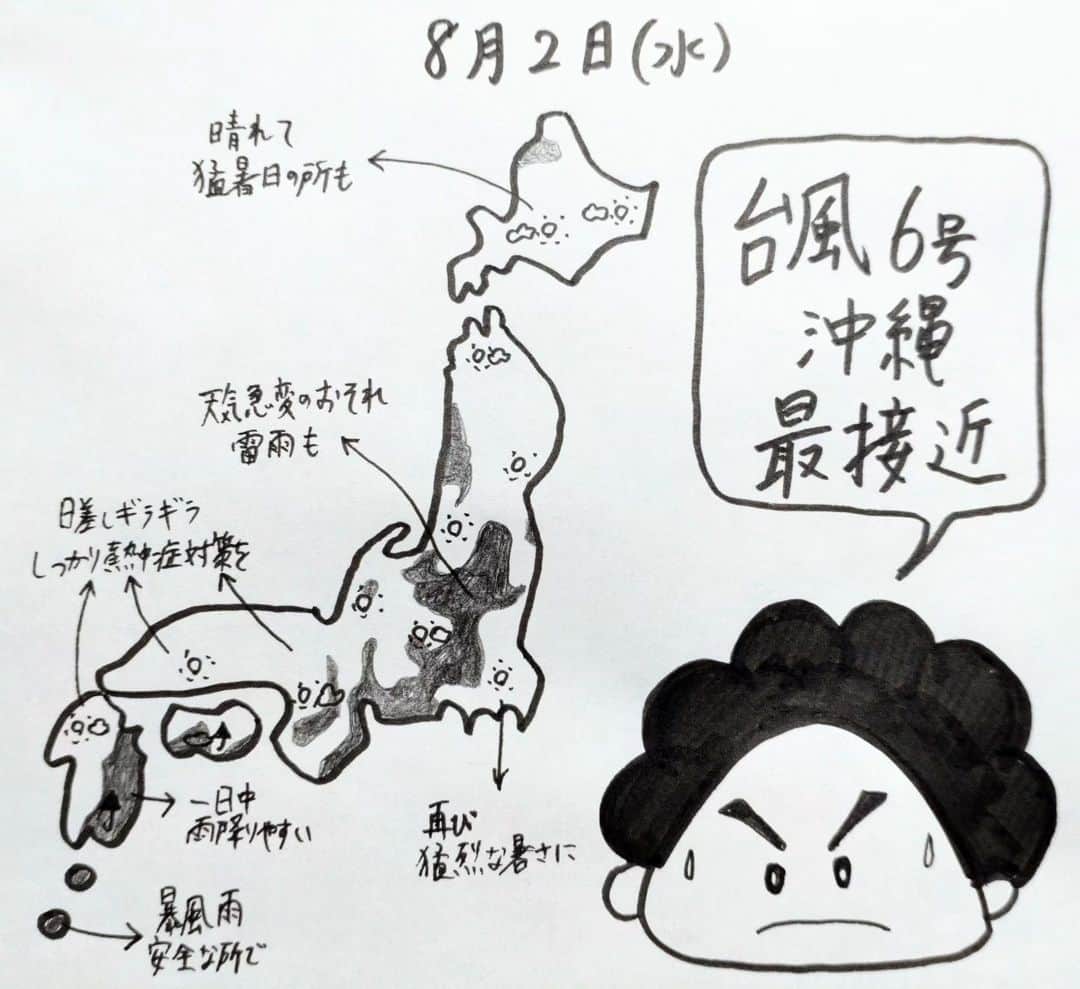 8月2日(水)
晴れて
猛暑日の所も
台風6号
沖縄
最接近
天気急変のおそれ
雷雨も
日差しギラギラ
しっかり熱中症対策を
一日中
雨降りやすい
再び
猛烈な暑さに
暴風雨
安全な所で